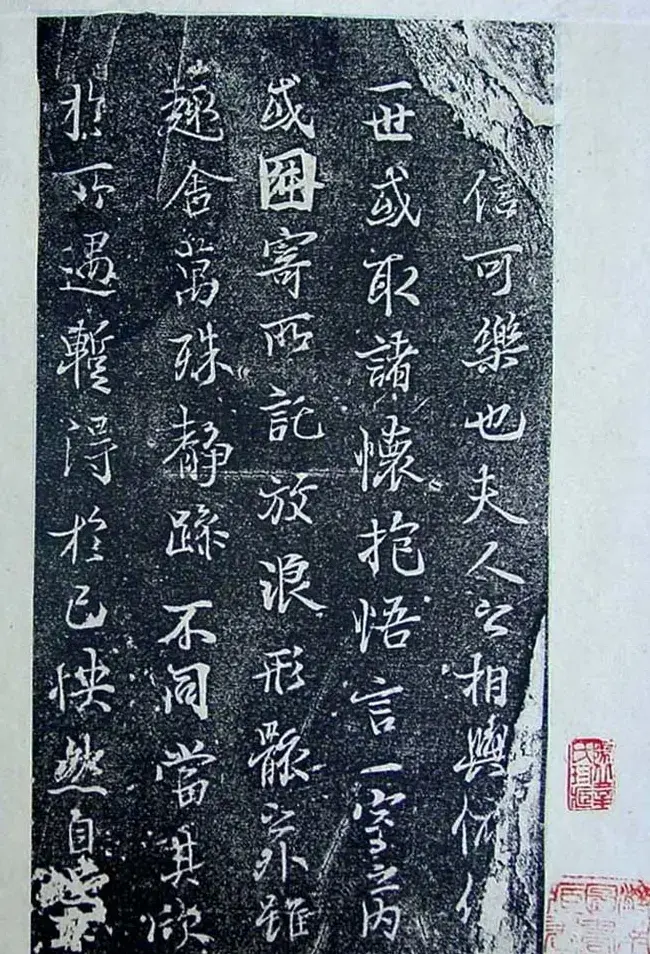 信可樂也夫人之相與俯仰
一世或取諸懷抱悟言一室之内
或因寄所託放浪形骸之外雖
趣舍萬殊靜躁不同當其欣
於所遇暫得於己怏然自